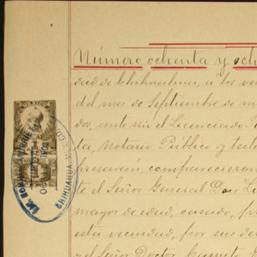 Número ochenta y och
dad de Chihuahua, a los ve
del mes de Septiembre de m
dos, ante mí el Licenciado
ta, Notario Público y testi
presencia, comparecieron
te el Señor General Don L
mayor de edad, casado, pr
esta vecindad, por sus de
el Señor Doctor
CHIHUAHUA